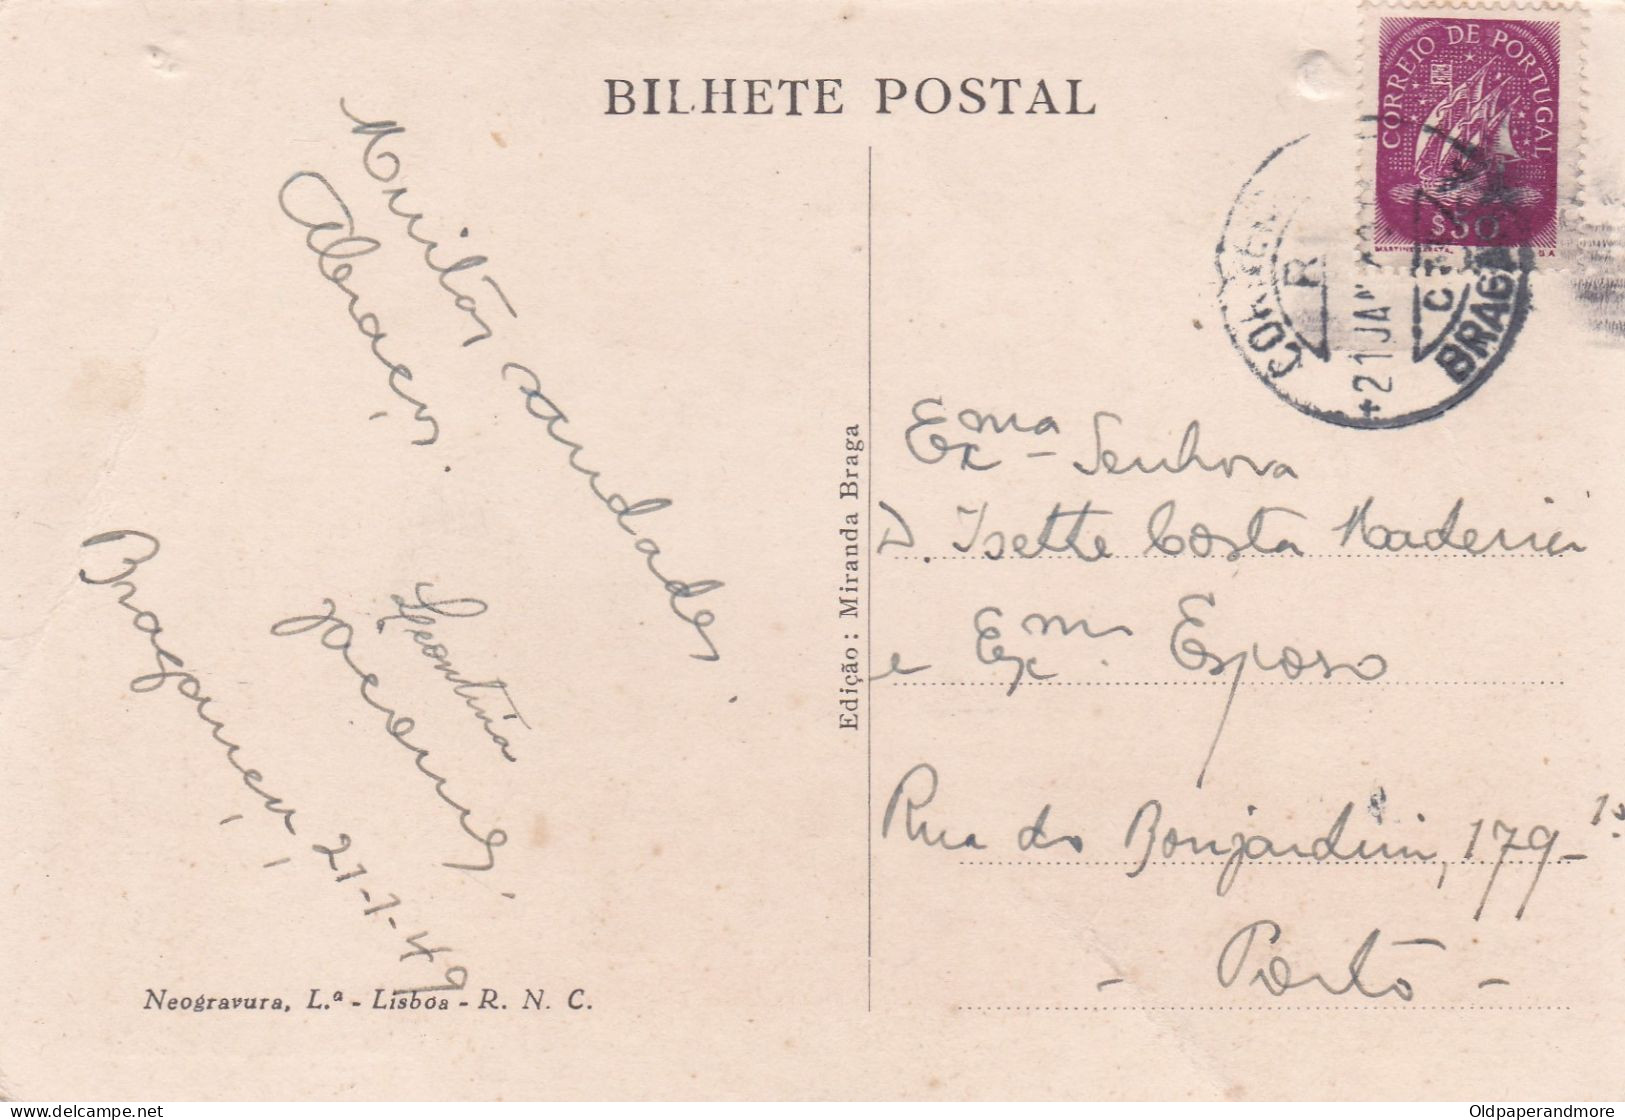 BILHETE POSTAL
CORREIO DE PORTUGAL
$50
21 JAN
Muitas saudades.
Abraços.
Leontina
Jácome.
Bragança, 21-1-49
Edição: Miranda Braga
Exma Senhora
D. Isette Costa Madeira
e Exmo. Esposo
Rua do Bonjardim, 179-1º
- Porto -
Neogravura, L.ª - Lisboa - R. N. C.
delcampe.net
Oldpaperandmore